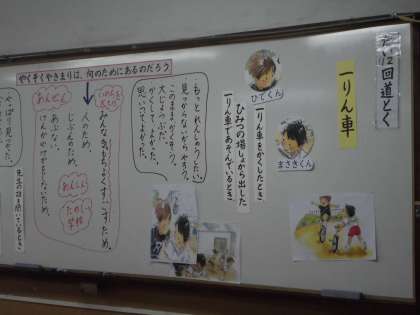 第12回道とく
一りん車
ひじくん
まさきくん
一りん車をかくしたとき
ひみつの場しょから出した
一りん車であそんでいるとき
もっとれんしゅうしたい。
見つからないからやろう。
このままかくそう。
大じょうぶだ。
かくしてよかった。
思いついてよかった。
やくそくやきまりは、何のためにあるのだろう
いのちをまもる
みんなが気もちよくすごすため。
人のため。
じぶんのため。
あぶない。
けんかやけがをしないため。
あんぜん
あんしん
たのしい学校
先生の話を聞いているとき
やっぱり見つかった。